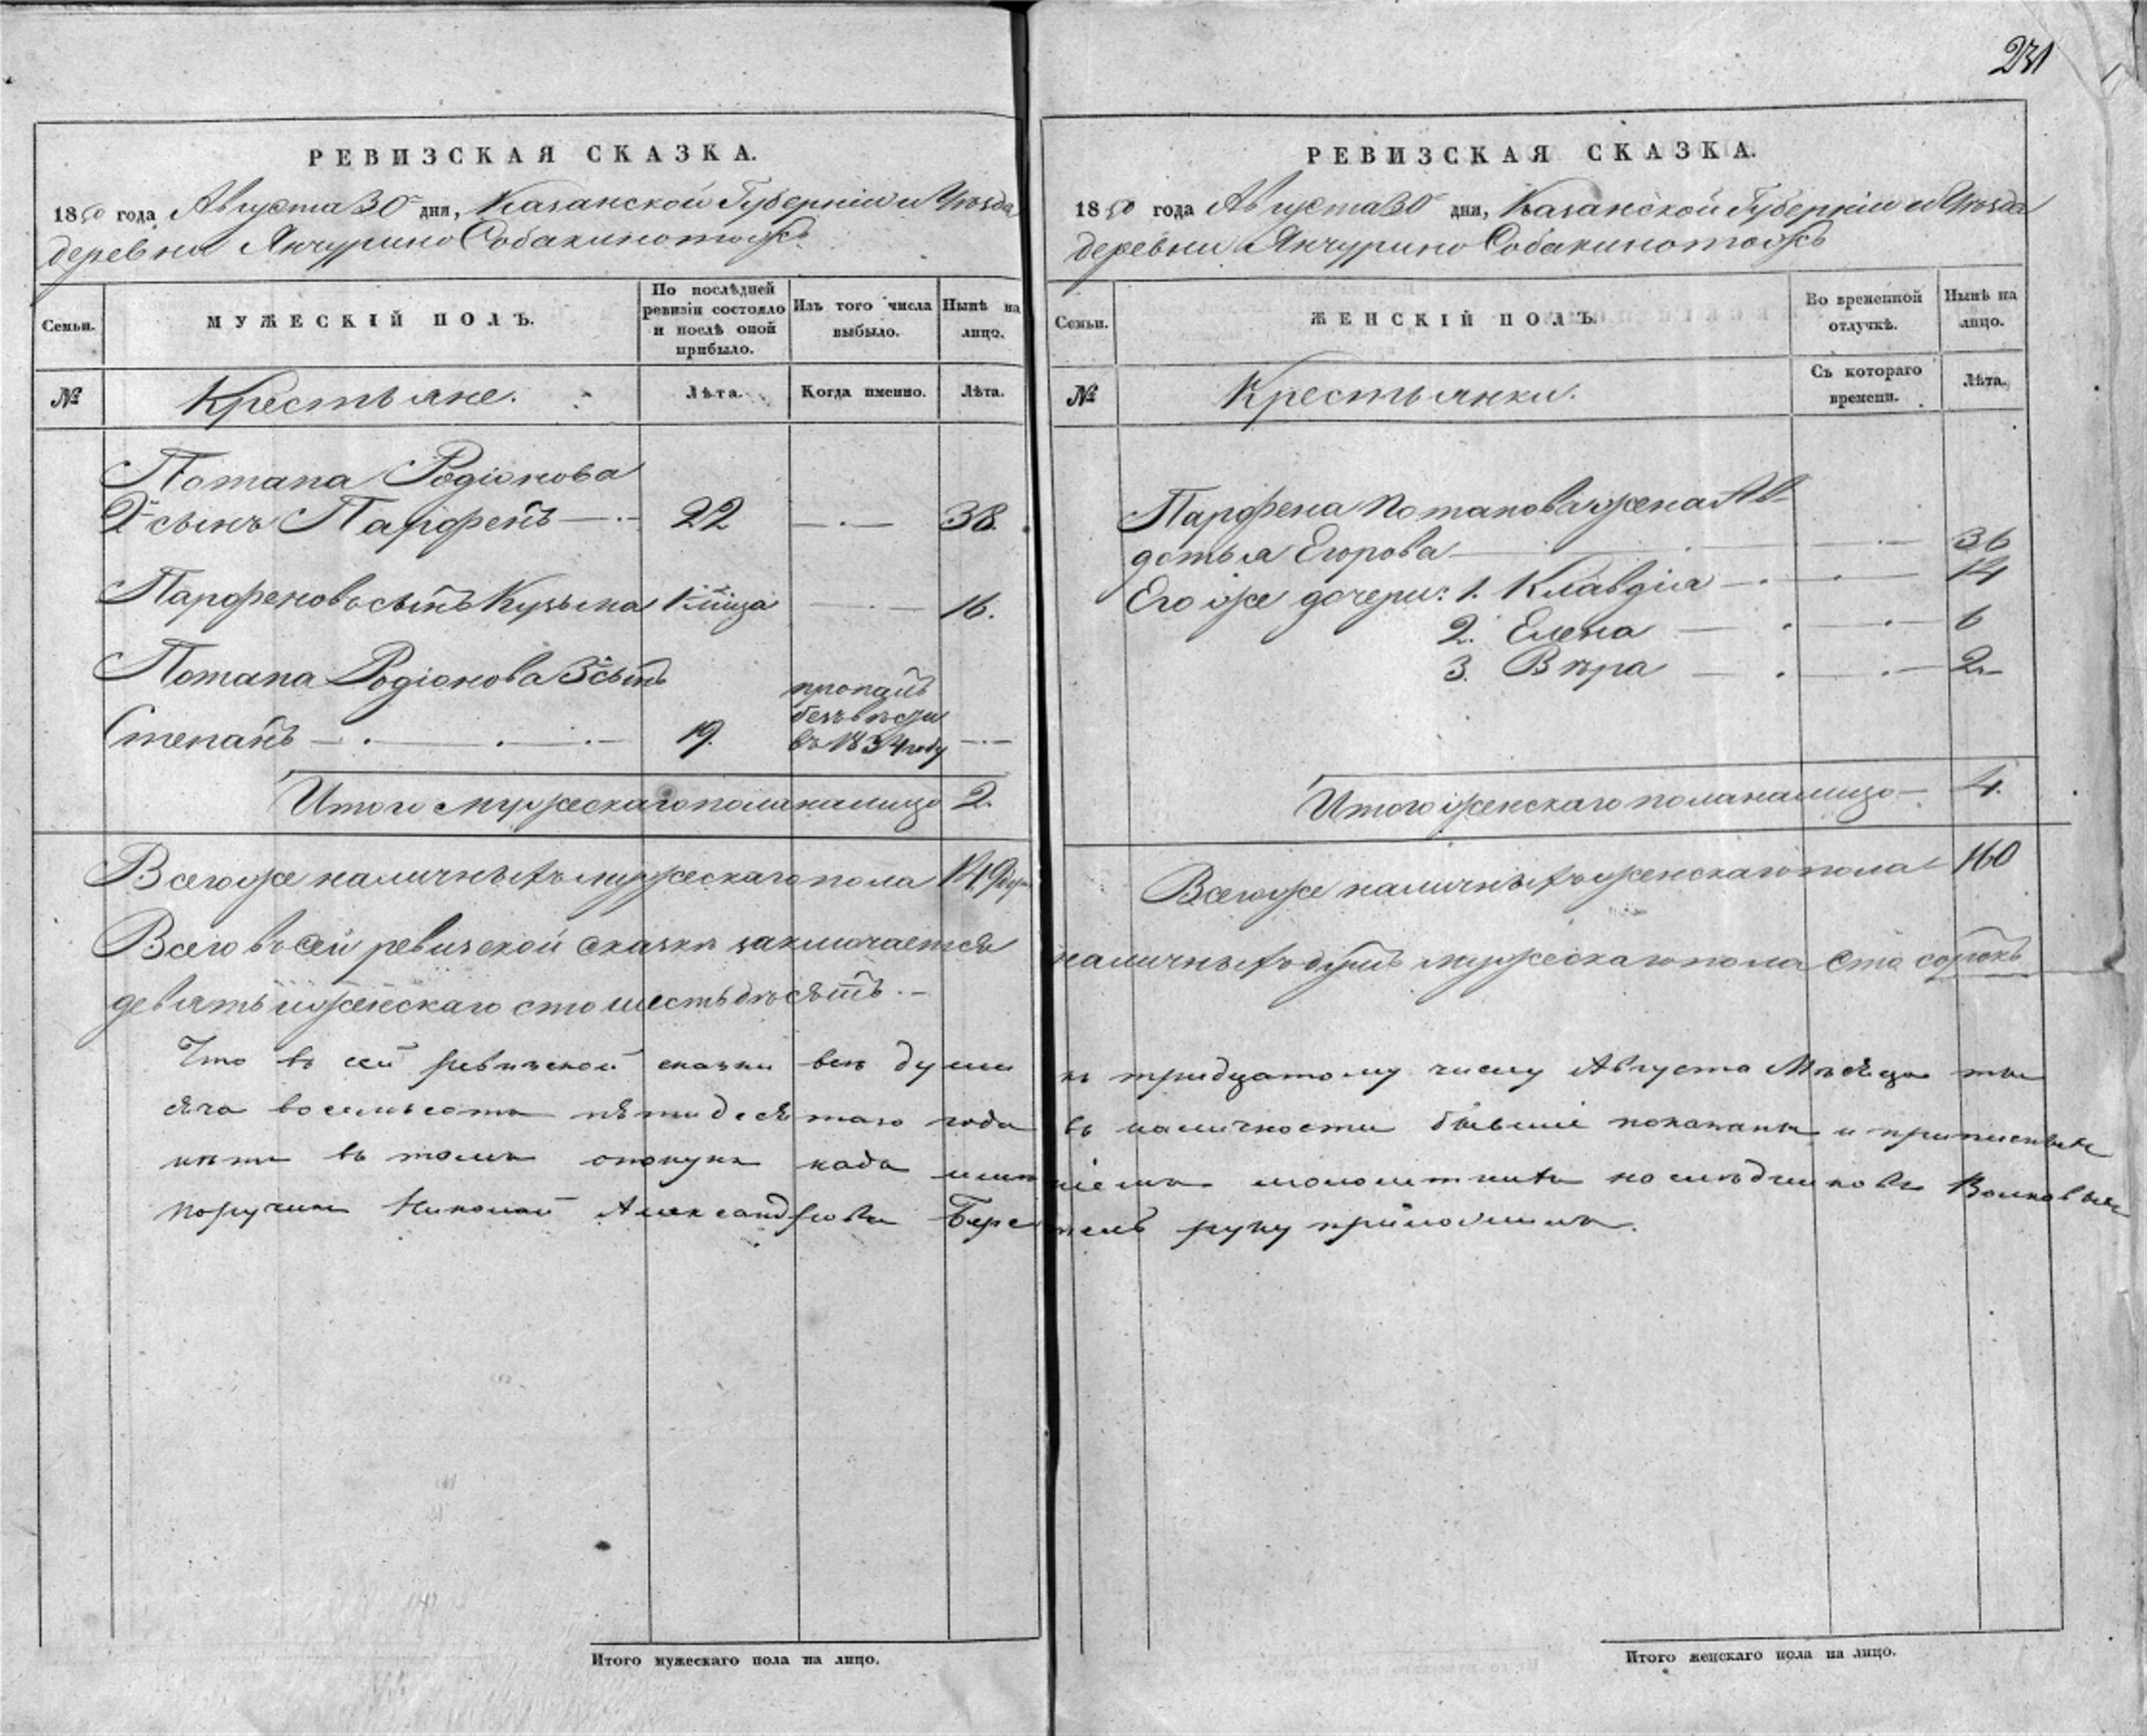 231
РЕВИЗСКАЯ СКАЗКА.
1850 года Августа 30 дня, Казанской Губерніи и Уѣзда
деревни Янчурино Собакино тожъ
Семьи.
МУЖЕСКІЙ ПОЛЪ.
По послѣдней
ревизіи состояло
и послѣ оной
прибыло.
Изъ того числа
выбыло.
Нынѣ на
лицо.
№
Крестьяне.
Лѣта.
Когда именно.
Лѣта.
Потапа Родіонова
2й сынъ Парфенъ — 22 — 38.
Парфеновъ сынъ Кузьма — 16.
Потапа Родіонова 3й сынъ
Степанъ — 19. пропалъ
безъ вѣсти
въ 1834 году —
Итого мужескаго пола на лицо 2.
Всего же наличныхъ мужескаго пола 149 душ
РЕВИЗСКАЯ СКАЗКА.
1850 года Августа 30 дня, Казанской Губерніи и Уѣзда
деревни Янчурино Собакино тожъ
Семьи.
ЖЕНСКІЙ ПОЛЪ.
Во временной
отлучкѣ.
Нынѣ на
лицо.
№
Крестьянки.
Съ котораго
времени.
Лѣта.
Парфена Потапова жена Ав-
дотья Егорова — 36
Его же дочери: 1. Клавдія — 14
2. Елена — 6
3. Вѣра — 2
Итого женскаго пола на лицо — 4.
Всего же наличныхъ женскаго пола 160
Всего въ сей ревизской сказкѣ заключается наличныхъ душъ мужескаго пола сто сорокъ
девять и женскаго сто шестьдесятъ. —
Что въ сей ревизской сказки всѣ души къ тридцатому числу Августа Мѣсяца ты
сяча восемьсотъ пятидесятаго года въ наличности бывшіе показаны и прописныхъ
нѣтъ въ томъ опекунъ надъ имѣніемъ малолѣтнихъ наслѣдниковъ
поручикъ Николай Александровъ руку приложилъ.
Итого мужескаго пола на лицо.
Итого женскаго пола на лицо.